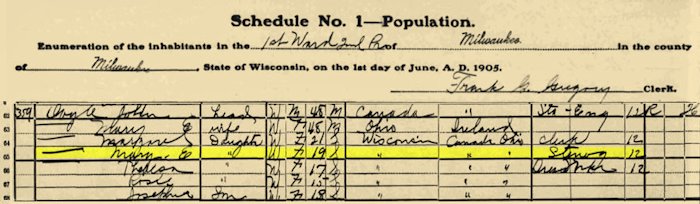 Schedule No. 1—Population.
Enumeration of the inhabitants in the 1st Ward 2nd Pr of Milwaukee in the county
of Milwaukee, State of Wisconsin, on the 1st day of June, A. D. 1905.
Frank G. Gregory Clerk.
62 359 John Head W M 48 M Canada " Sta-Eng 12 R
63 Mary E wife W F 48 M Ohio Ireland
64 E Daughtr W F 21 S Wisconsin Canada Ohio Clerk 12
65 Mary E " W F 19 S " " " Stenog 12
66 " W F 17 S " " " 12
67 Rosie " W F 15 S " " "
68 Son W 18 S " " "